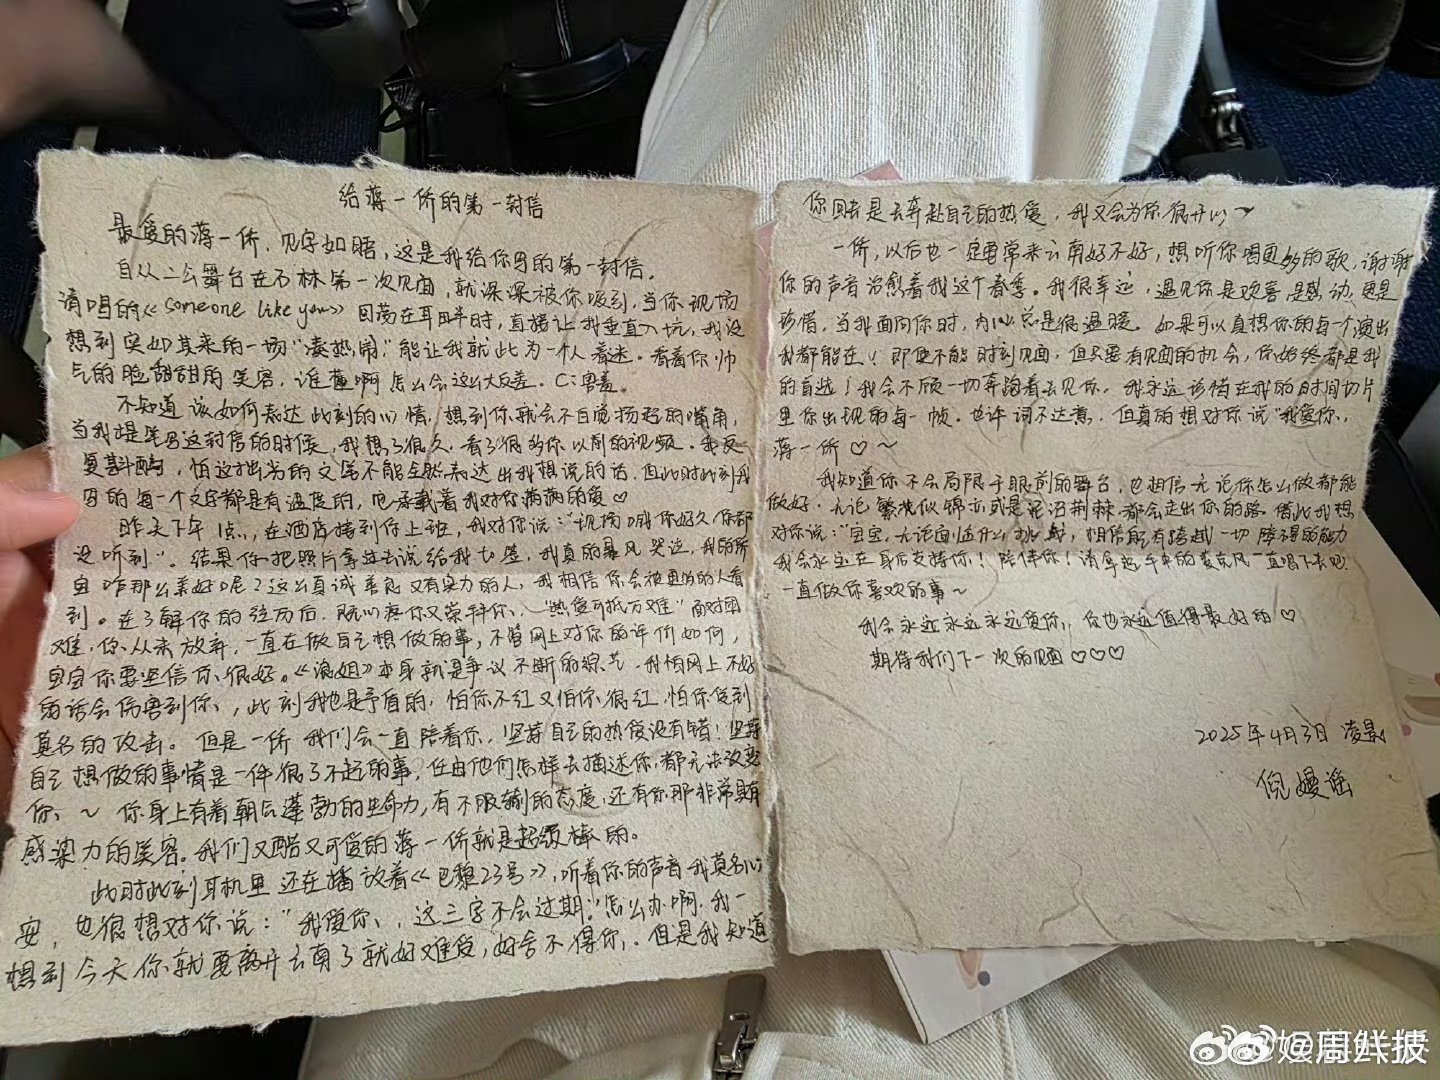 给薄一侨的第一封信
最爱的薄一侨，见字如晤，这是我给你写的第一封信。
自从二公舞台在石林第一次见面，就深深被你吸引，当你现场
清唱的《someone like you》回荡在耳畔时，直接让我垂直入坑，我没
想到突如其来的一场“凑热闹”能让我就此为一个人着迷。看着你帅
气的脸甜甜的笑容，谁懂啊 怎么会这么大反差。C：单羞。
不知道该如何表达此刻的心情，想到你就会不自觉扬起的嘴角，
当我提笔写这封信的时候，我想了很久，看了很多你以前的视频。我反
复斟酌，怕这拙劣的文笔不能全然表达出我想说的话，但此时此刻我
写的每一个文字都是有温度的，它承载着我对你满满的爱♡
昨天下午1点，在酒店接到你上班，我对你说：“现场喊你好久你都
没听到”。结果你把照片拿过去说给我也签，我真的暴风哭泣，我的乔
宝咋那么美好呢？这么真诚善良又有实力的人，我相信你会被更多的人看
到。在了解你的经历后，既心疼你又崇拜你，“热爱可抵万难”面对困
难，你从未放弃，一直在做自己想做的事，不管网上对你的评价如何，
宝宝你要坚信你很好。《浪姐》本身就是争议不断的综艺，我怕网上不好
的话会伤害到你，此刻我也是矛盾的，怕你不红又怕你很红，怕你受到
莫名的攻击。但是一侨 我们会一直陪着你，坚持自己的热爱没有错！坚持
自己想做的事情是一件很了不起的事，任由他们怎样去描述你，都无法改变
你～ 你身上有着朝气蓬勃的生命力，有不服输的态度，还有你那非常具有
感染力的笑容。我们又酷又可爱的薄一侨就是超级棒的。
此时此刻耳机里还在播放着《巴黎23号》，听着你的声音我莫名心
安，也很想对你说：“我爱你，这三字不会过期。”怎么办啊，我一
想到今天你就要离开云南了就好难受，好舍不得你。但是我知道
你 是去奔赴自己的热爱，我又会为你很开心～
一侨，以后也一定要常来云南好不好，想听你唱更多的歌，谢谢
你的声音治愈着我这个春季。我很幸运，遇见你是欢喜是感动更是
珍惜，当我面向你时，内心总是很温暖。如果可以真想你的每个演出
我都能在！即使不能时刻见面，但只要有见面的机会，你始终都是我
的首选！我会不顾一切奔跑着去见你。我永远珍惜在我的时间切片
里你出现的每一帧。也许词不达意，但真的想对你说“我爱你，
薄一侨♡～
我知道你不会局限于眼前的舞台，也相信无论你怎么做都能
做好，无论繁花似锦亦或是泥沼荆棘都会走出你的路。借此我想
对你说：“宝宝，无论面临什么挑战，相信能有跨越一切障碍的能力
我会永远在身后支持你！陪伴你！请拿起手中的麦克风一直唱下去吧
一直做你喜欢的事～
我会永远永远永远爱你，你也永远值得最好的♡
期待我们下一次的见面♡♡♡
2025年4月3日 凌晨
倪嫚谣
@周鲜披